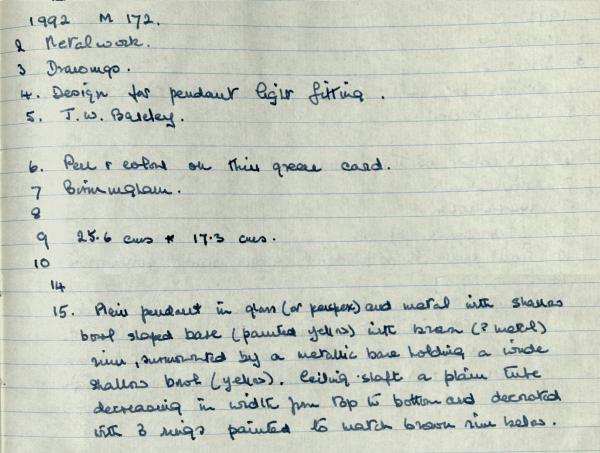 1992 M 172.
2 Metalwork.
3 Drawings.
4. Design for pendant light fitting.
5. J.W. Barclay.
6. Pen & colour on thin green card.
7 Birmingham.
8
9 25.6 cms * 17.3 cms.
10
14
15. Plain pendant in glass (or perspex) and metal with shallow
bowl shaped base (painted yellow) with brown (? metal)
rim, surmounted by a metallic base holding a wide
shallow bowl (yellow). Ceiling shaft a plain tube
decreasing in width from top to bottom and decorated
with 3 rings painted to match brown rim below.